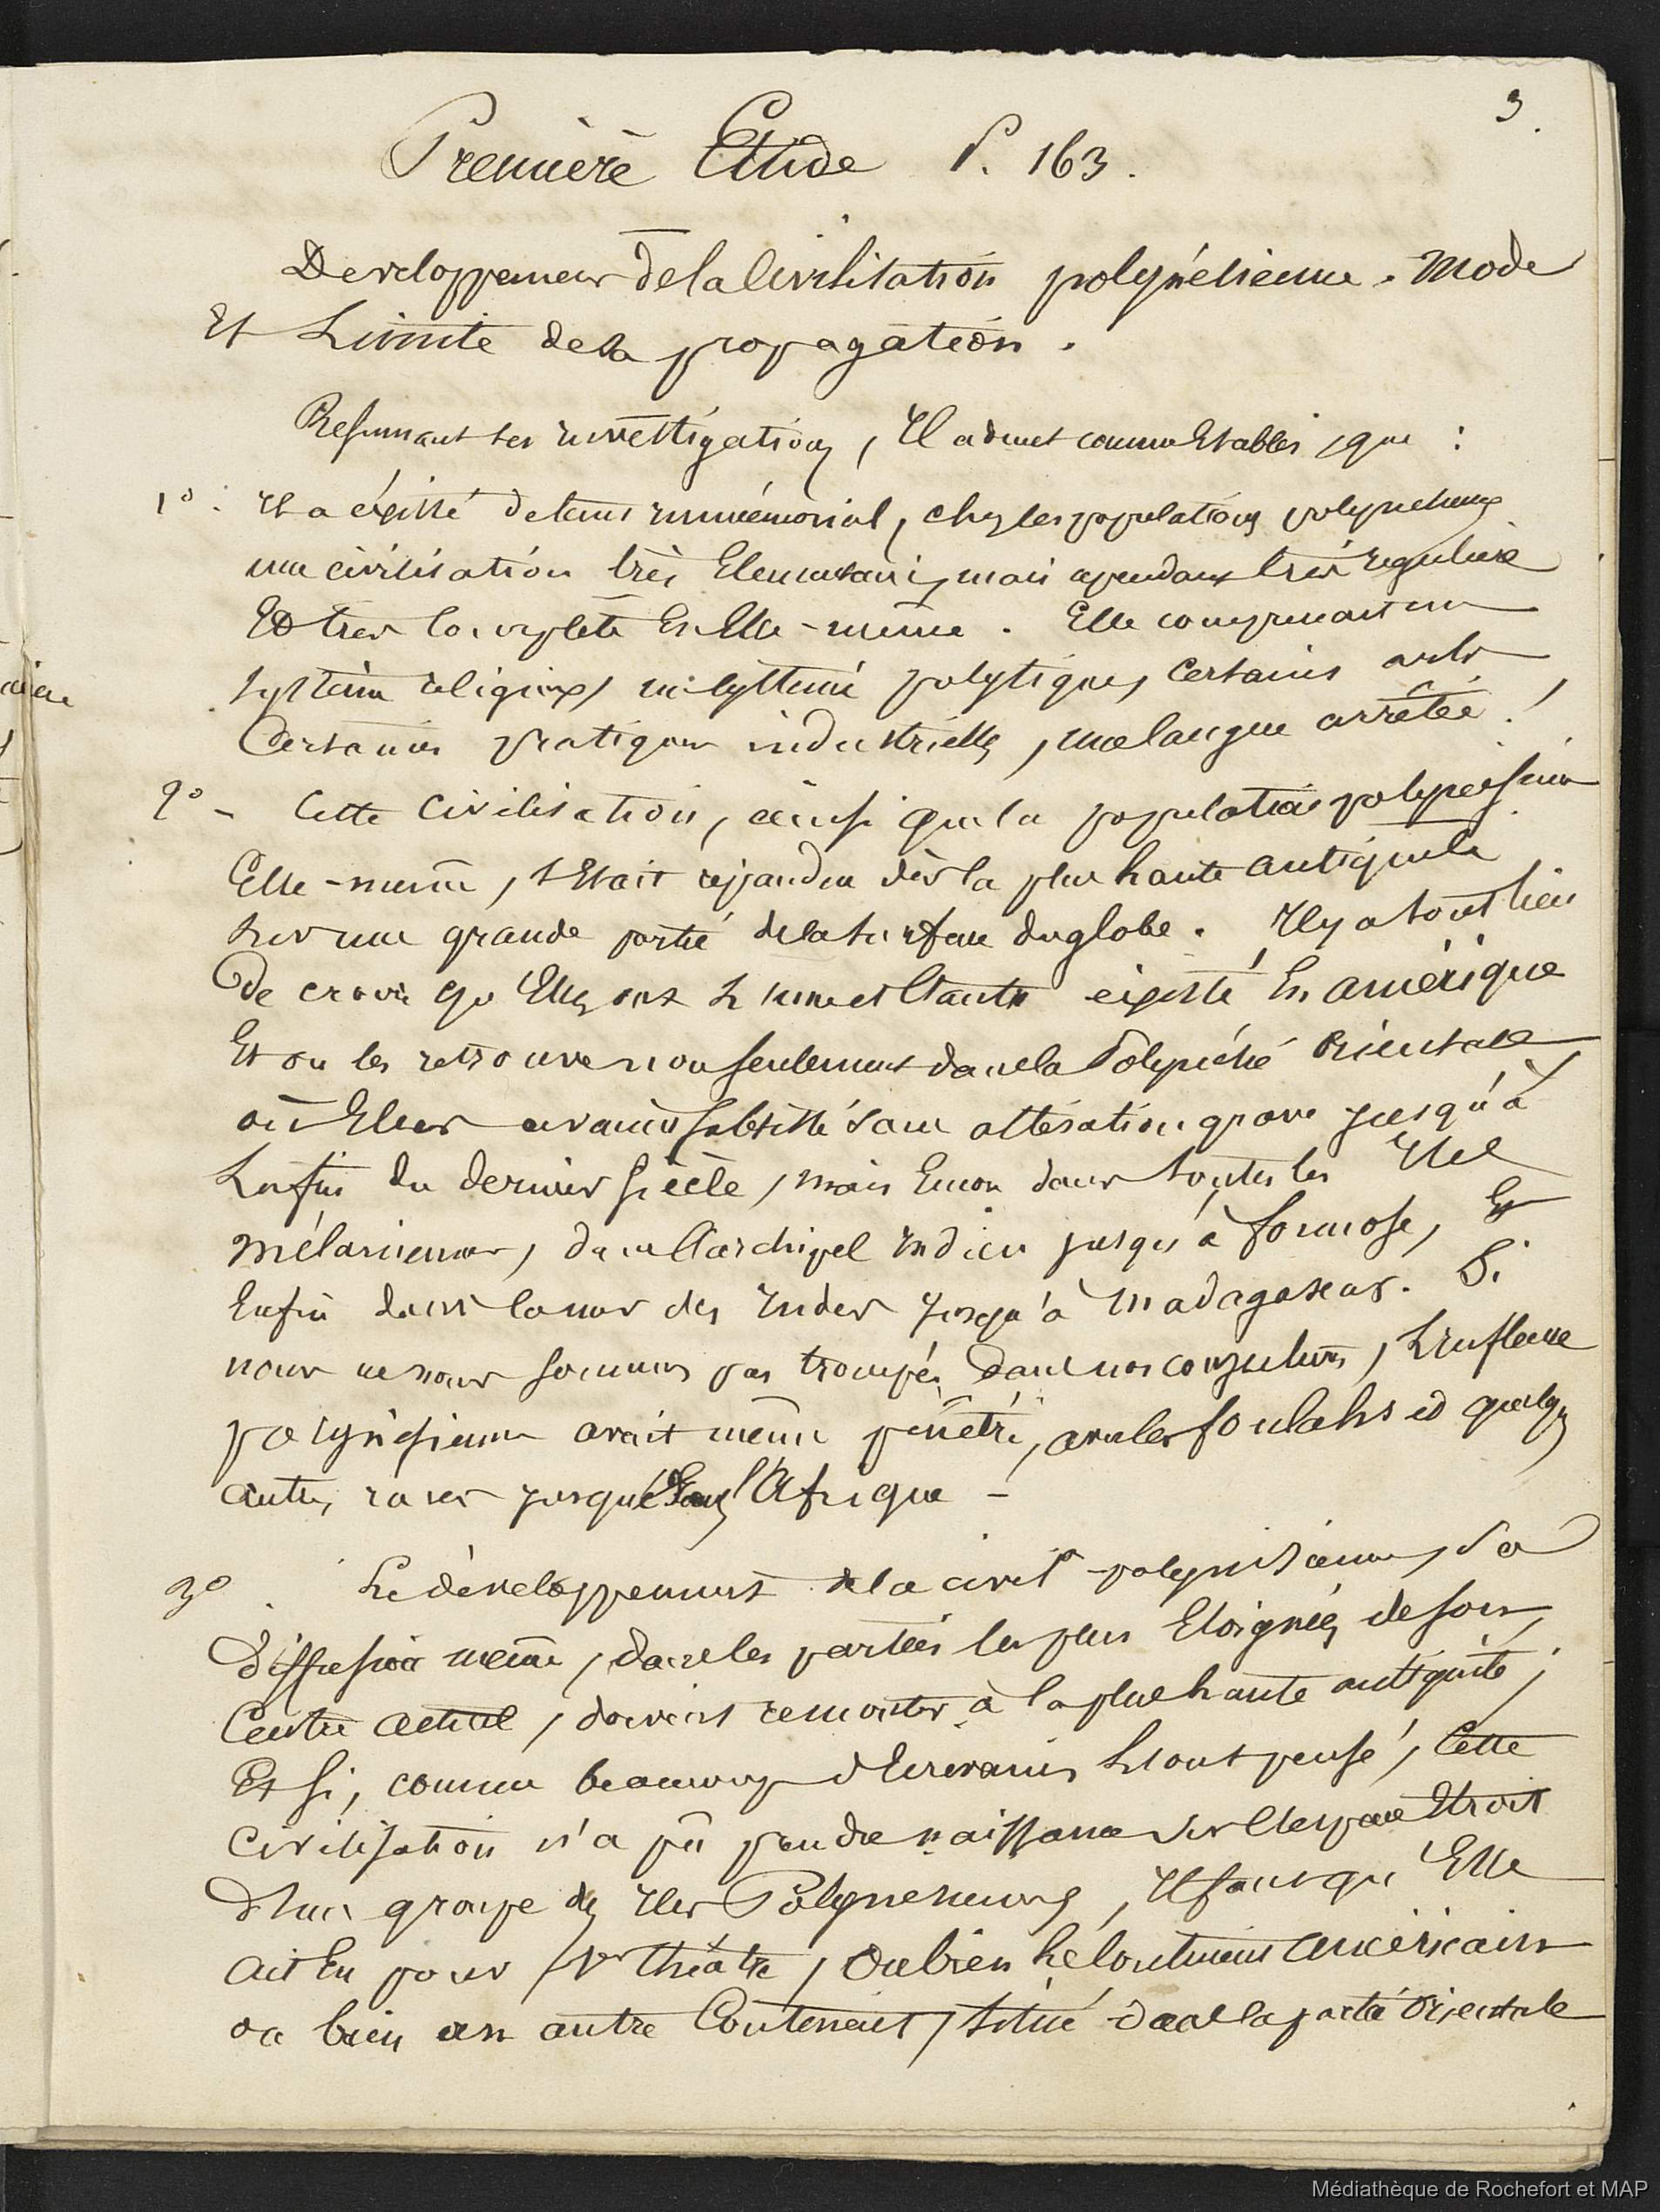 3.
Première Etude P. 163.
Developpement de la Civilisation polynésienne. Mode
Et Limite de sa propagation.
Resumant ses investigations, Il admet comme Etablis, que :
1° : Il a existé de tems immémorial, chez les populations polynésiennes
une civilisation très Elementaire, mais cependant très régulière
Et tres complète En Elle-même. Elle comprenait un
système religieux, un système polytique, certains arts
Certaines pratiques industrielles, une langue arrêtée.
2° - Cette Civilisation, ainsi que la population polynésienne
Elle-même, s'Etait répandue dès la plus haute antiquité
sur une grande partie de la surface du globe. Il y a tout lieu
De croire qu'Elles ont L'une et L'autre existé En amérique
Et on les retrouve non seulement dans la Polynésie Orientale
où Elles avaient subsisté sans altération grave jusqu'à
La fin du dernier siècle, mais Encore dans toutes les Iles
mélaniennes, dans l'archipel indien jusqu'à formose, Et
Enfin dans la mer des Indes jusqu'à Madagascar. Si
nous ne nous sommes pas trompés dans nos conjectures, L'influence
polynésienne avait même pénétré, avec les foulahs et quelques
autres races jusques dans l'Afrique -
3° . Le développement de la civilon polynésienne, Sa
diffusion même, dans les parties les plus Eloignées de son
Centre actuel, doivent remonter à la plus haute antiquité ;
Et si, comme beaucoup d'Ecrivains L'ont pensé, Cette
Civilisation n'a pû prendre naissance sur l'Espace Etroit
d'un groupe des Iles Polynésiennes, Il faut qu'Elle
ait Eu pour 1er théâtre, ou bien Le Continent américain
ou bien un autre Continent, situé dans la partie Orientale
Médiathèque de Rochefort et MAP